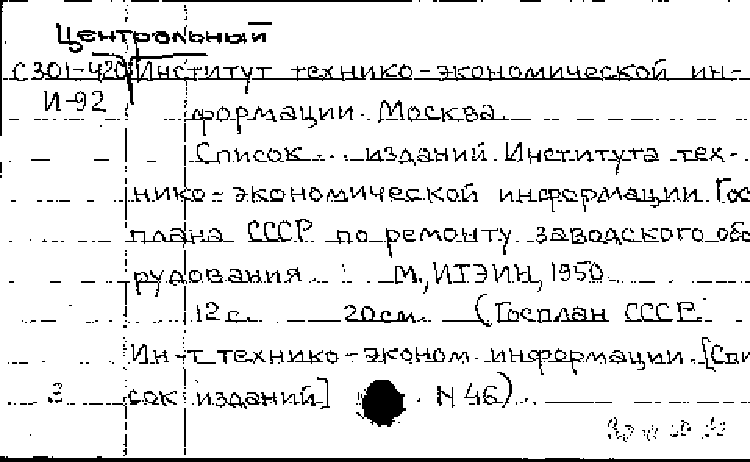 Центральный
С301-420 Институт технико-экономической ин-
И-92 формации. Москва.
Список... изданий Института тех-
нико-экономической информации Гос
плана СССР по ремонту заводского обо
рудования... М., ИТЭИН, 1950.
12 с. 20 см. (Госплан СССР.
Ин-т технико-эконом. информации. [Спи
3 сок изданий] . N 46).